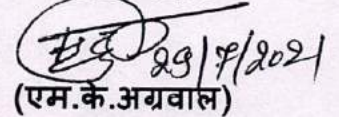 29/7/2021
(एम.के.अग्रवाल)